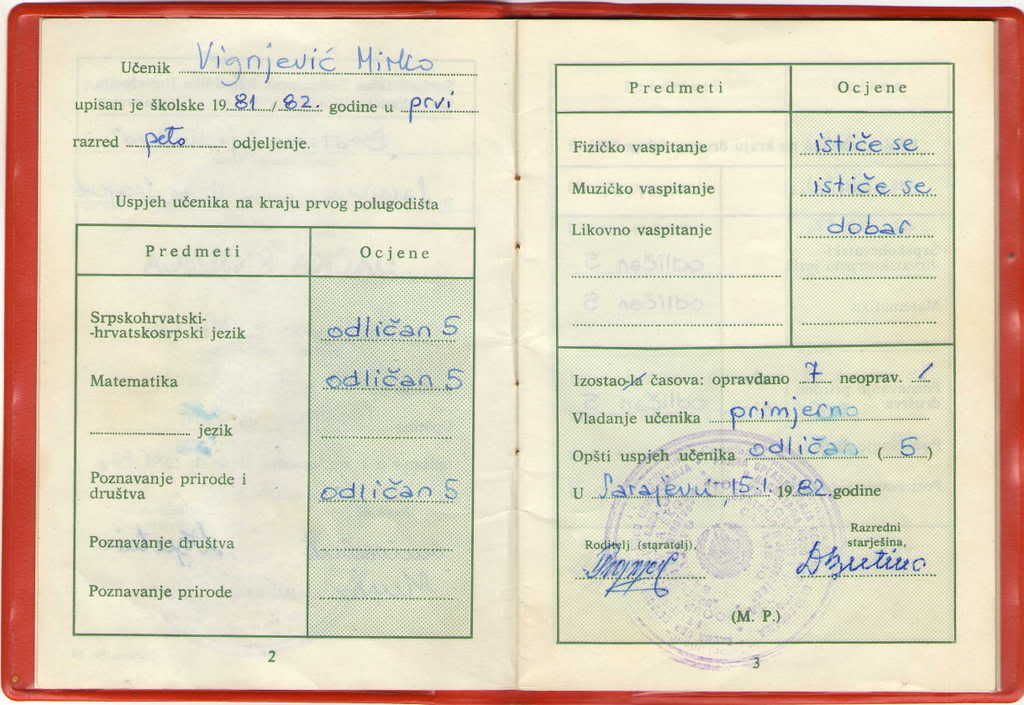 Učenik Vignjević Mirko
upisan je školske 1981/82. godine u prvi
razred peto odjeljenje.
Uspjeh učenika na kraju prvog polugodišta
Predmeti Ocjene
Srpskohrvatski-
-hrvatskosrpski jezik odličan 5
Matematika odličan 5
jezik
Poznavanje prirode i
društva odličan 5
Poznavanje društva
Poznavanje prirode
2
Predmeti Ocjene
Fizičko vaspitanje ističe se
Muzičko vaspitanje ističe se
Likovno vaspitanje dobar
Izostao-la časova: opravdano 7 neoprav. /
Vladanje učenika primjerno
Opšti uspjeh učenika odličan (5)
U Sarajevu, 15.1. 1982. godine
Roditelj (staratelj),
Razredni
starješina,
(M. P.)
3